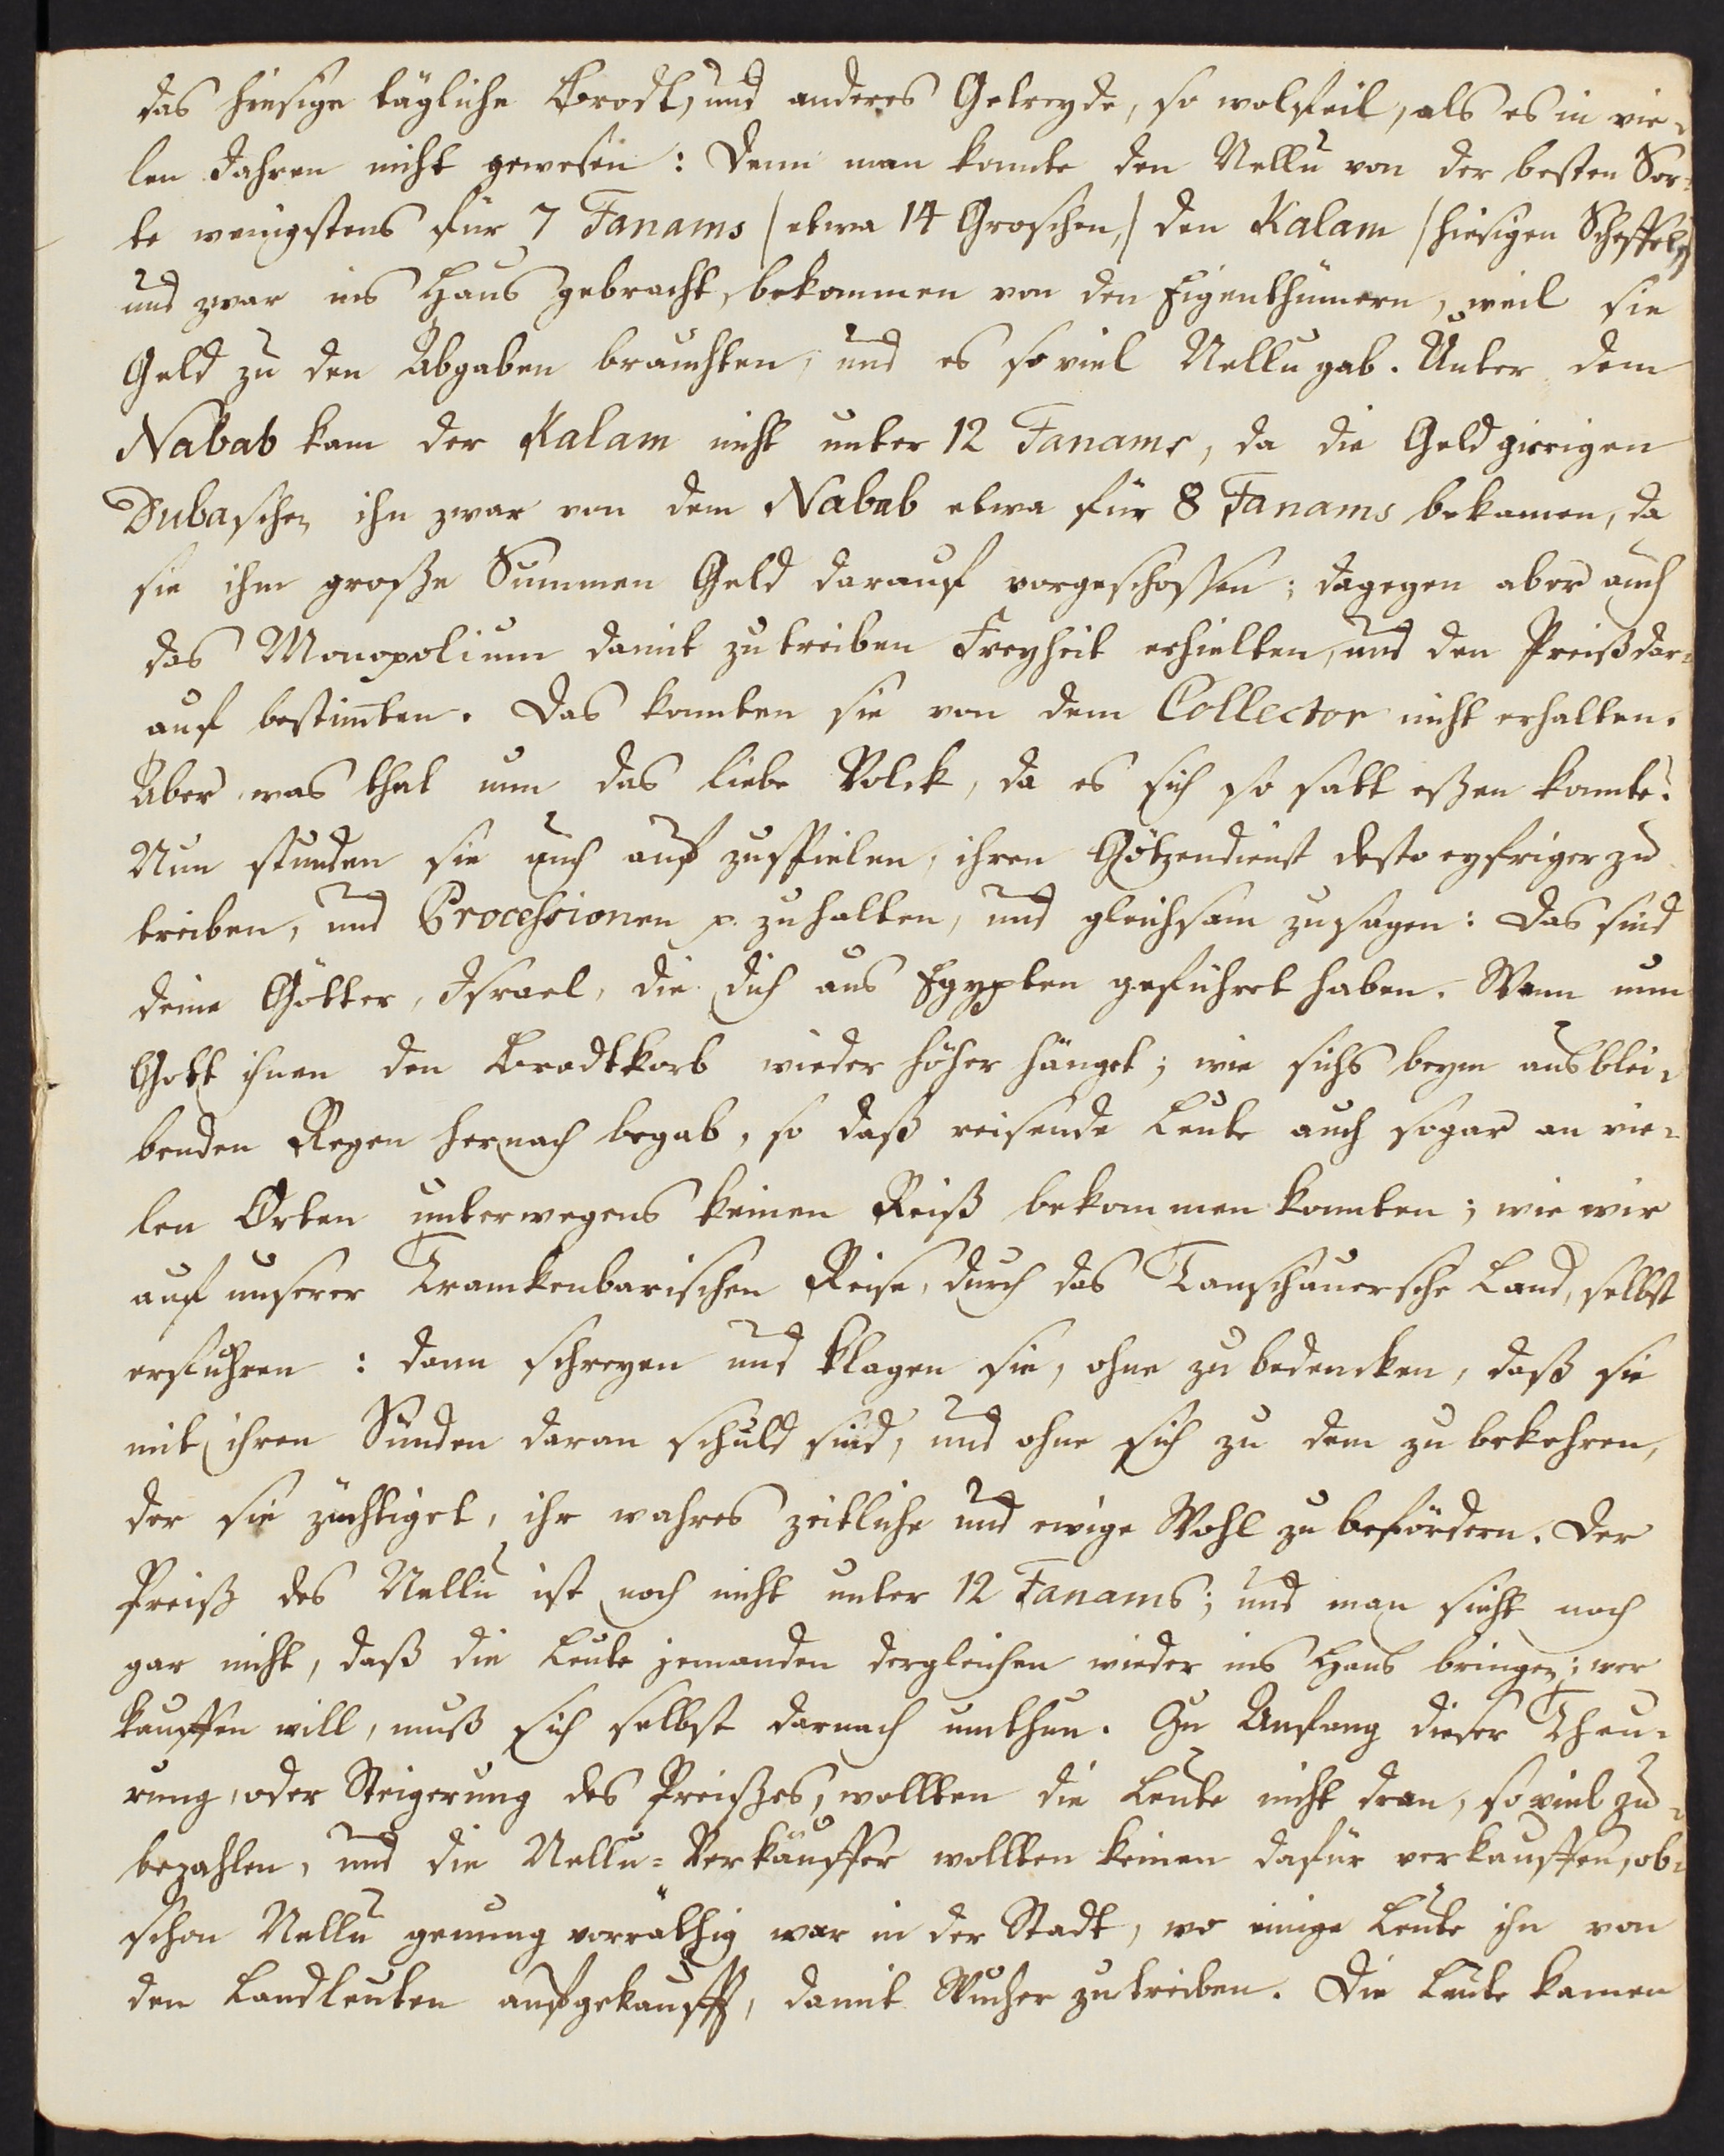 das hiesige tägliche Brodt, und anderes Getreyde, so wolfeil, als es in vie-
len Jahren nicht gewesen: Denn man konnte den Nellu von der besten Sor-
te wenigstens für 7 Fanams /etwa 14 Groschen,/ den Kalam /hiesigen Scheffel,/
und zwar ins Haus gebracht, bekommen von den Eigenthümern, weil sie
Geld zu den Abgaben brauchten, und es so viel Nellu gab. Unter dem
Nabab kam der Kalam nicht unter 12 Fanams, da die Geldgierigen
Dubaschen ihn zwar von dem Nabab etwa für 8 Fanams bekamen, da
sie ihm große Summen Geld darauf vorgeschossen; dagegen aber auch
das Monopolium damit zu treiben Freyheit erhielten, und den Preiß dar-
auf bestimten. Das konnten sie von dem Collector nicht erhalten.
Aber was that nun das liebe Volck, da es sich so satt eßen konnte?
Nun stunden sie auch auf zu spielen, ihren Götzendienst desto eyfriger zu
treiben, und Processionen p. zu halten, und gleichsam zu sagen: Das sind
deine Götter, Israel, die dich aus Egypten geführet haben. Wenn nun
Gott ihnen den Brodtkorb wieder höher hänget; wie sichs beym ausblei-
benden Regen hernach begab, so daß reisende Leute auch sogar an vie-
len Orten unterwegens keinen Reiß bekommen konnten; wie wir
auf unserer Tranckenbarischen Reise, durch das Tanschauersche Land, selbst
erfuhren: dann schreyen und klagen sie, ohne zu bedencken, daß sie
mit ihren Sünden daran schuld sind, und ohne sich zu dem zu bekehren,
der sie züchtiget, ihr wahres zeitliche und ewige Wohl zu befördern. Der
Preiß des Nellu ist noch nicht unter 12 Fanams; und man sieht noch
gar nicht, daß die Leute jemanden dergleichen wieder ins Haus bringen; wer
kauffen will, muß sich selbst darnach umthun. Zu Anfang dieser Theu-
rung, oder Steigerung des Preißes, wollten die Leute nicht dran, so viel zu
bezahlen, und die Nellu-Verkäuffer wollten keinen dafür verkauffen, ob-
schon Nellu genung vorräthig war in der Stadt, wo einige Leute ihn von
den Landleuten aufgekaufft, damit Wucher zu treiben. Die Leute kamen